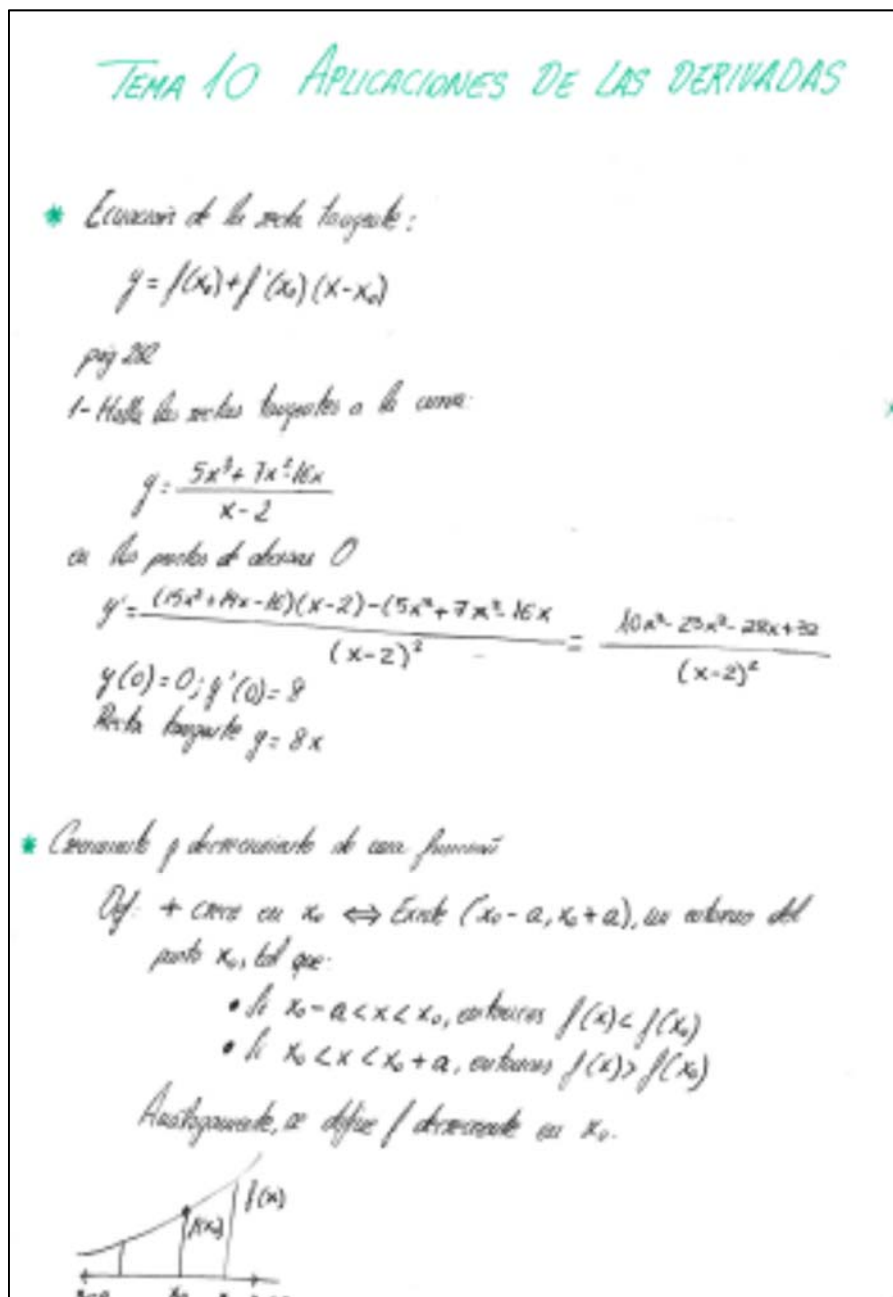 TEMA 10 APLICACIONES DE LAS DERIVADAS
* Ecuación de la recta tangente:
y = f(x₀) + f'(x₀) (x-x₀)
pág 282
1- Halla las rectas tangentes a la curva:
y = (5x³ + 7x² - 16x) / (x - 2)
en los puntos de abscisa 0
y' = ((15x² + 14x - 16)(x-2) - (5x³ + 7x² - 16x) / (x-2)² = (10x³ - 23x² - 28x + 32) / (x-2)²
y(0) = 0; y'(0) = 8
Recta tangente y = 8x
* Crecimiento y decrecimiento de una función
Def: + crece en x₀ ⇔ Existe (x₀ - a, x₀ + a), un entorno del
punto x₀, tal que:
• Si x₀ - a < x < x₀, entonces f(x) < f(x₀)
• Si x₀ < x < x₀ + a, entonces f(x) > f(x₀)
Análogamente, se define f decreciente en x₀.
f(x₀) f(x)
x₀